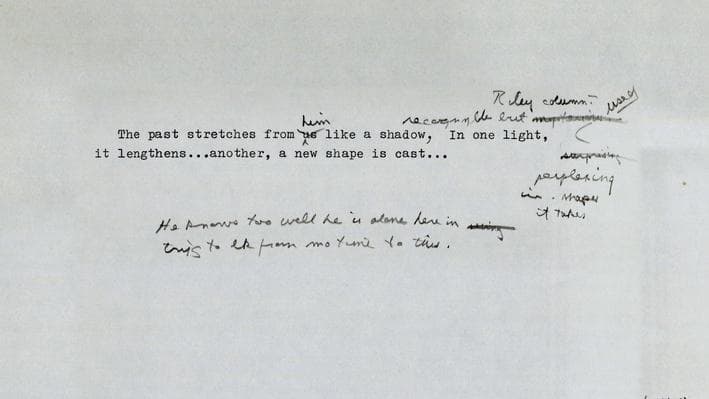 Riley column: used
him recognizable but mysterious
The past stretches from us like a shadow, In one light,
it lengthens...another, a new shape is cast...
surprising
perplexing
in shapes
it takes
He knows too well he is alone here in seeing
trying to from time to this.